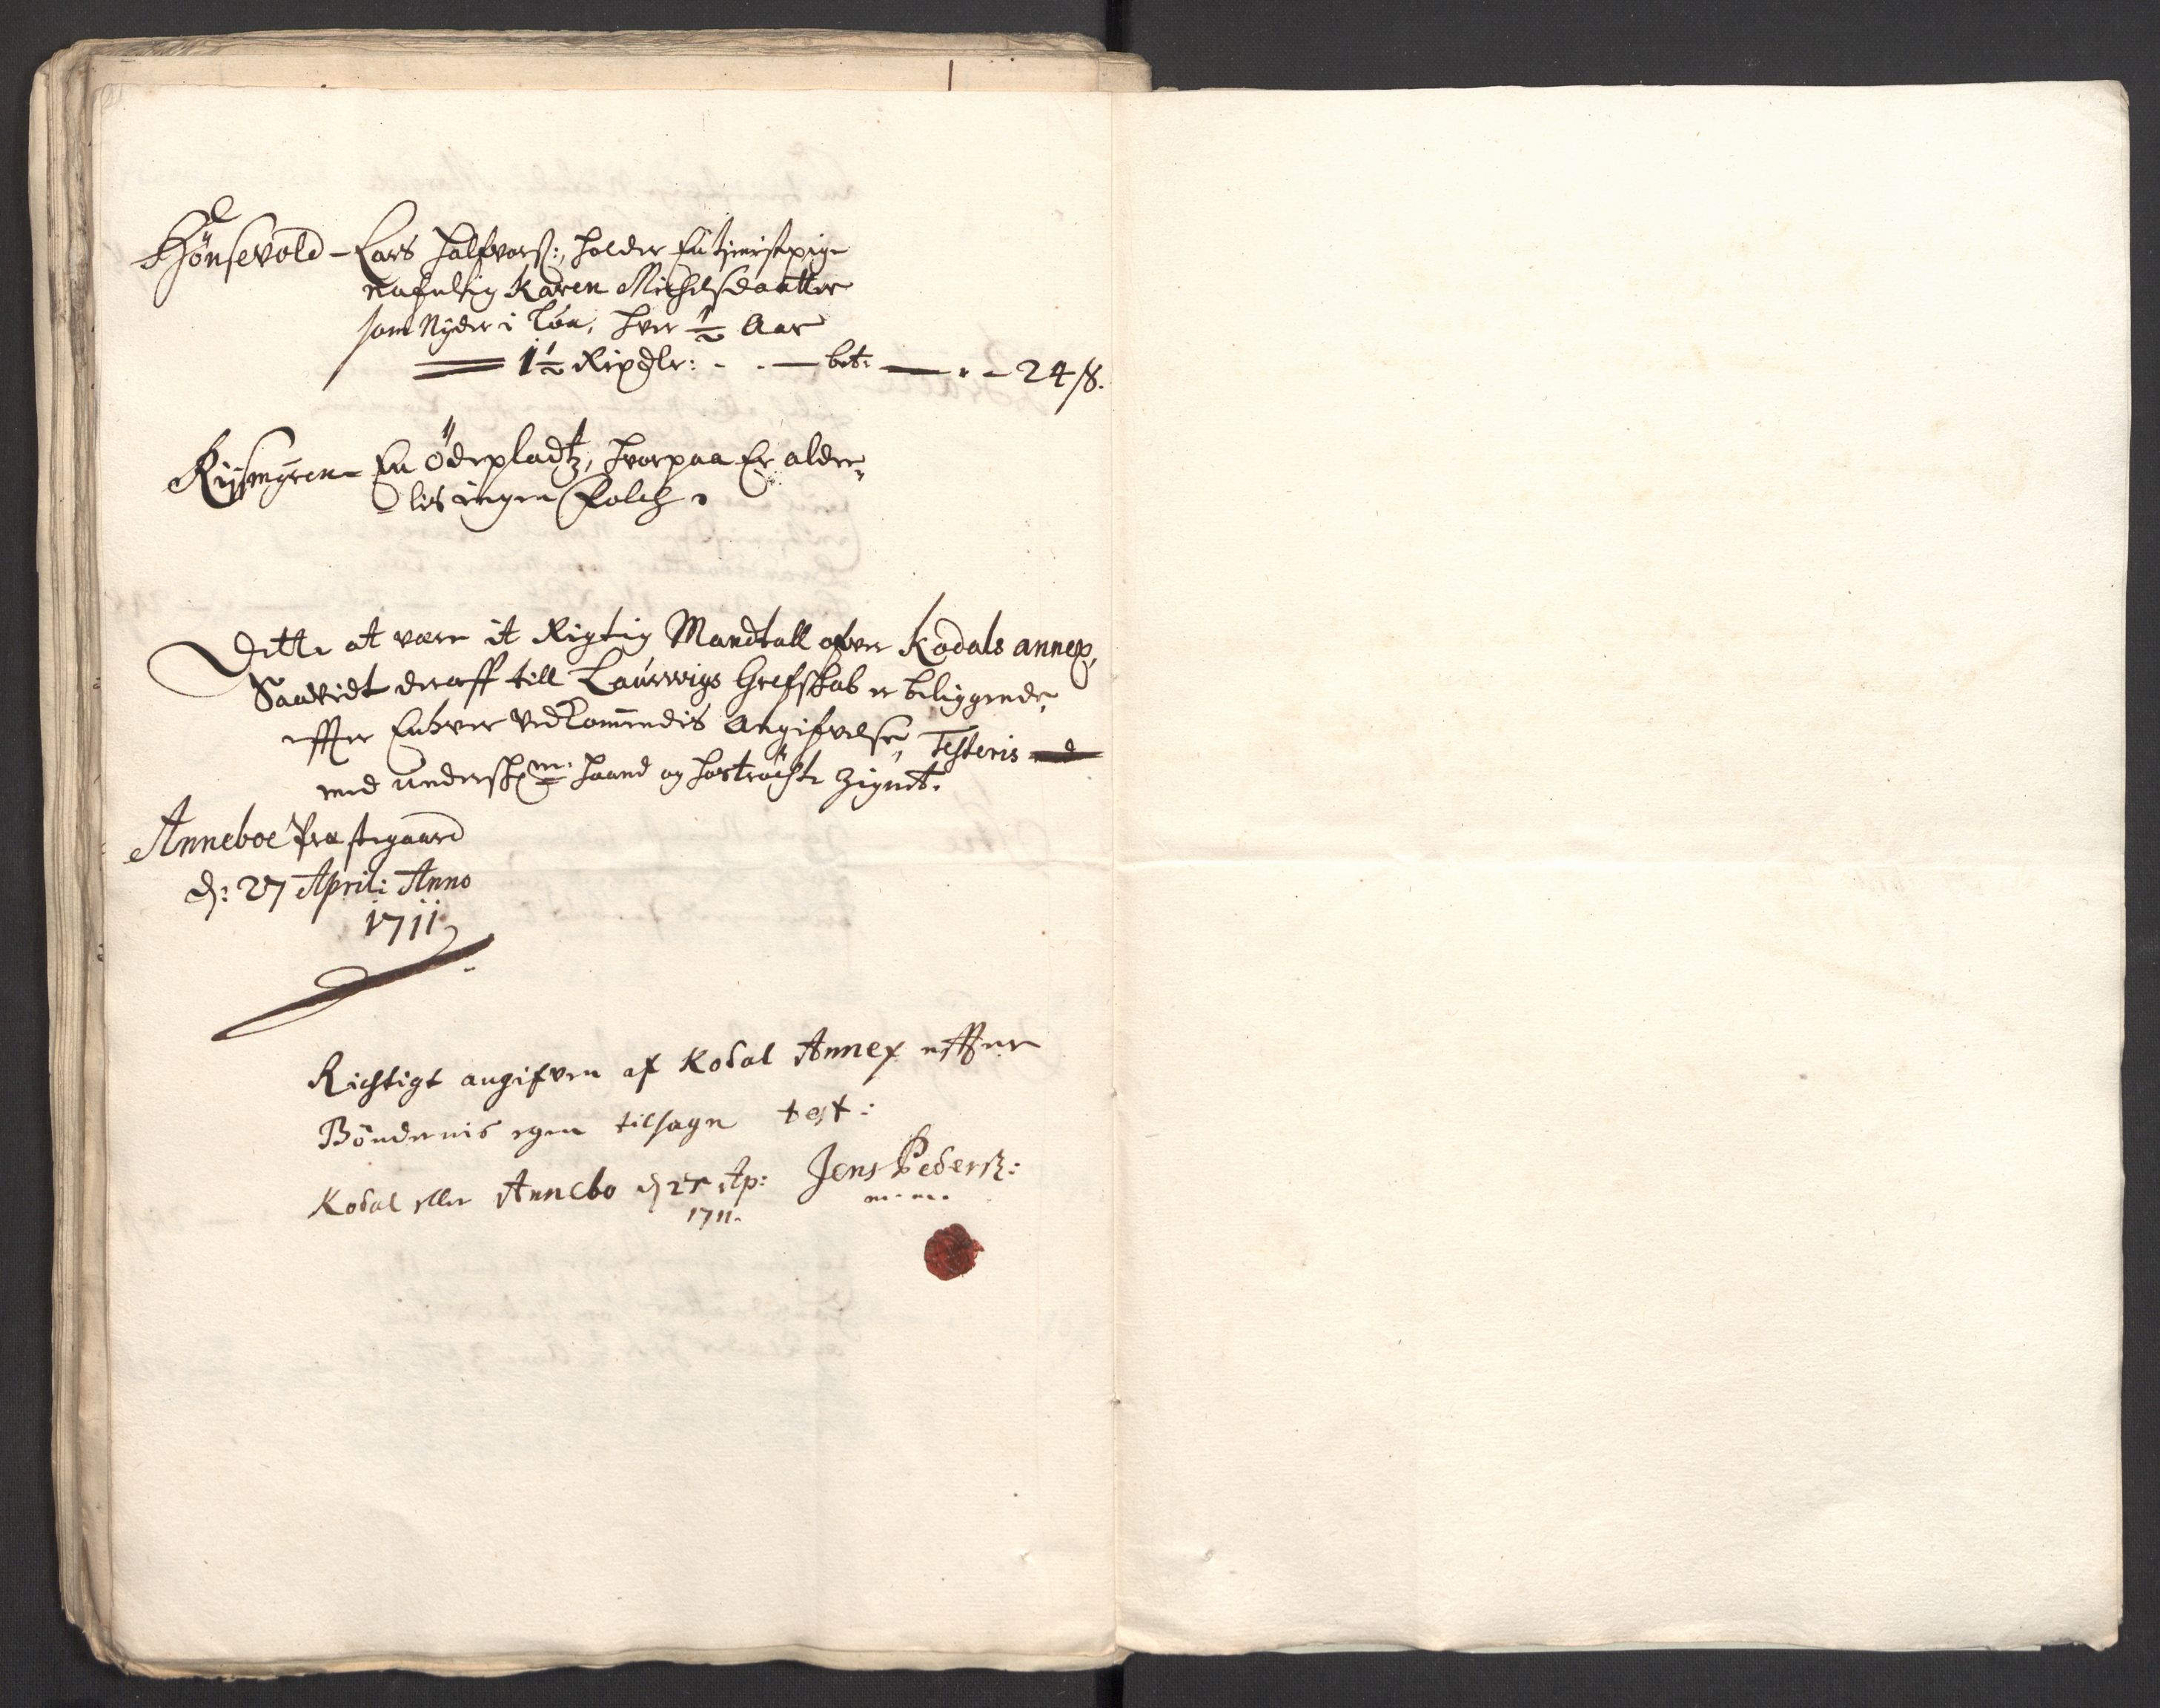 Hönsevold – Lars Halfvors:, holder En tieniste pige
nafnlig Karen Michelsdaatter
som Nyder i Lön, hver ½ Aar
1½ Rixdlr: - - — bet: — - - 24 ß.
Rijsmyren – En ödepladtz, hvorpaa Er alde-
lis ingen Folch.
Dette at være it Rigtig Mandtall ofver Kodals annex,
Saavidt deraff till Laurwigs Grefskab er beliggende,
effter Enhver vedkommendis Angifvelse, Testeris
med undersk: haand og hoströchte Zignet.
Anneboe Præstegaard
d: 27 Aprili Anno
1711
Richtigt angifven af Kodal Annex effter
Böndernis egen tilsagn test:
Kodal eller Annebo d 27 Ap: Jens Pederß:
1711. m. m.